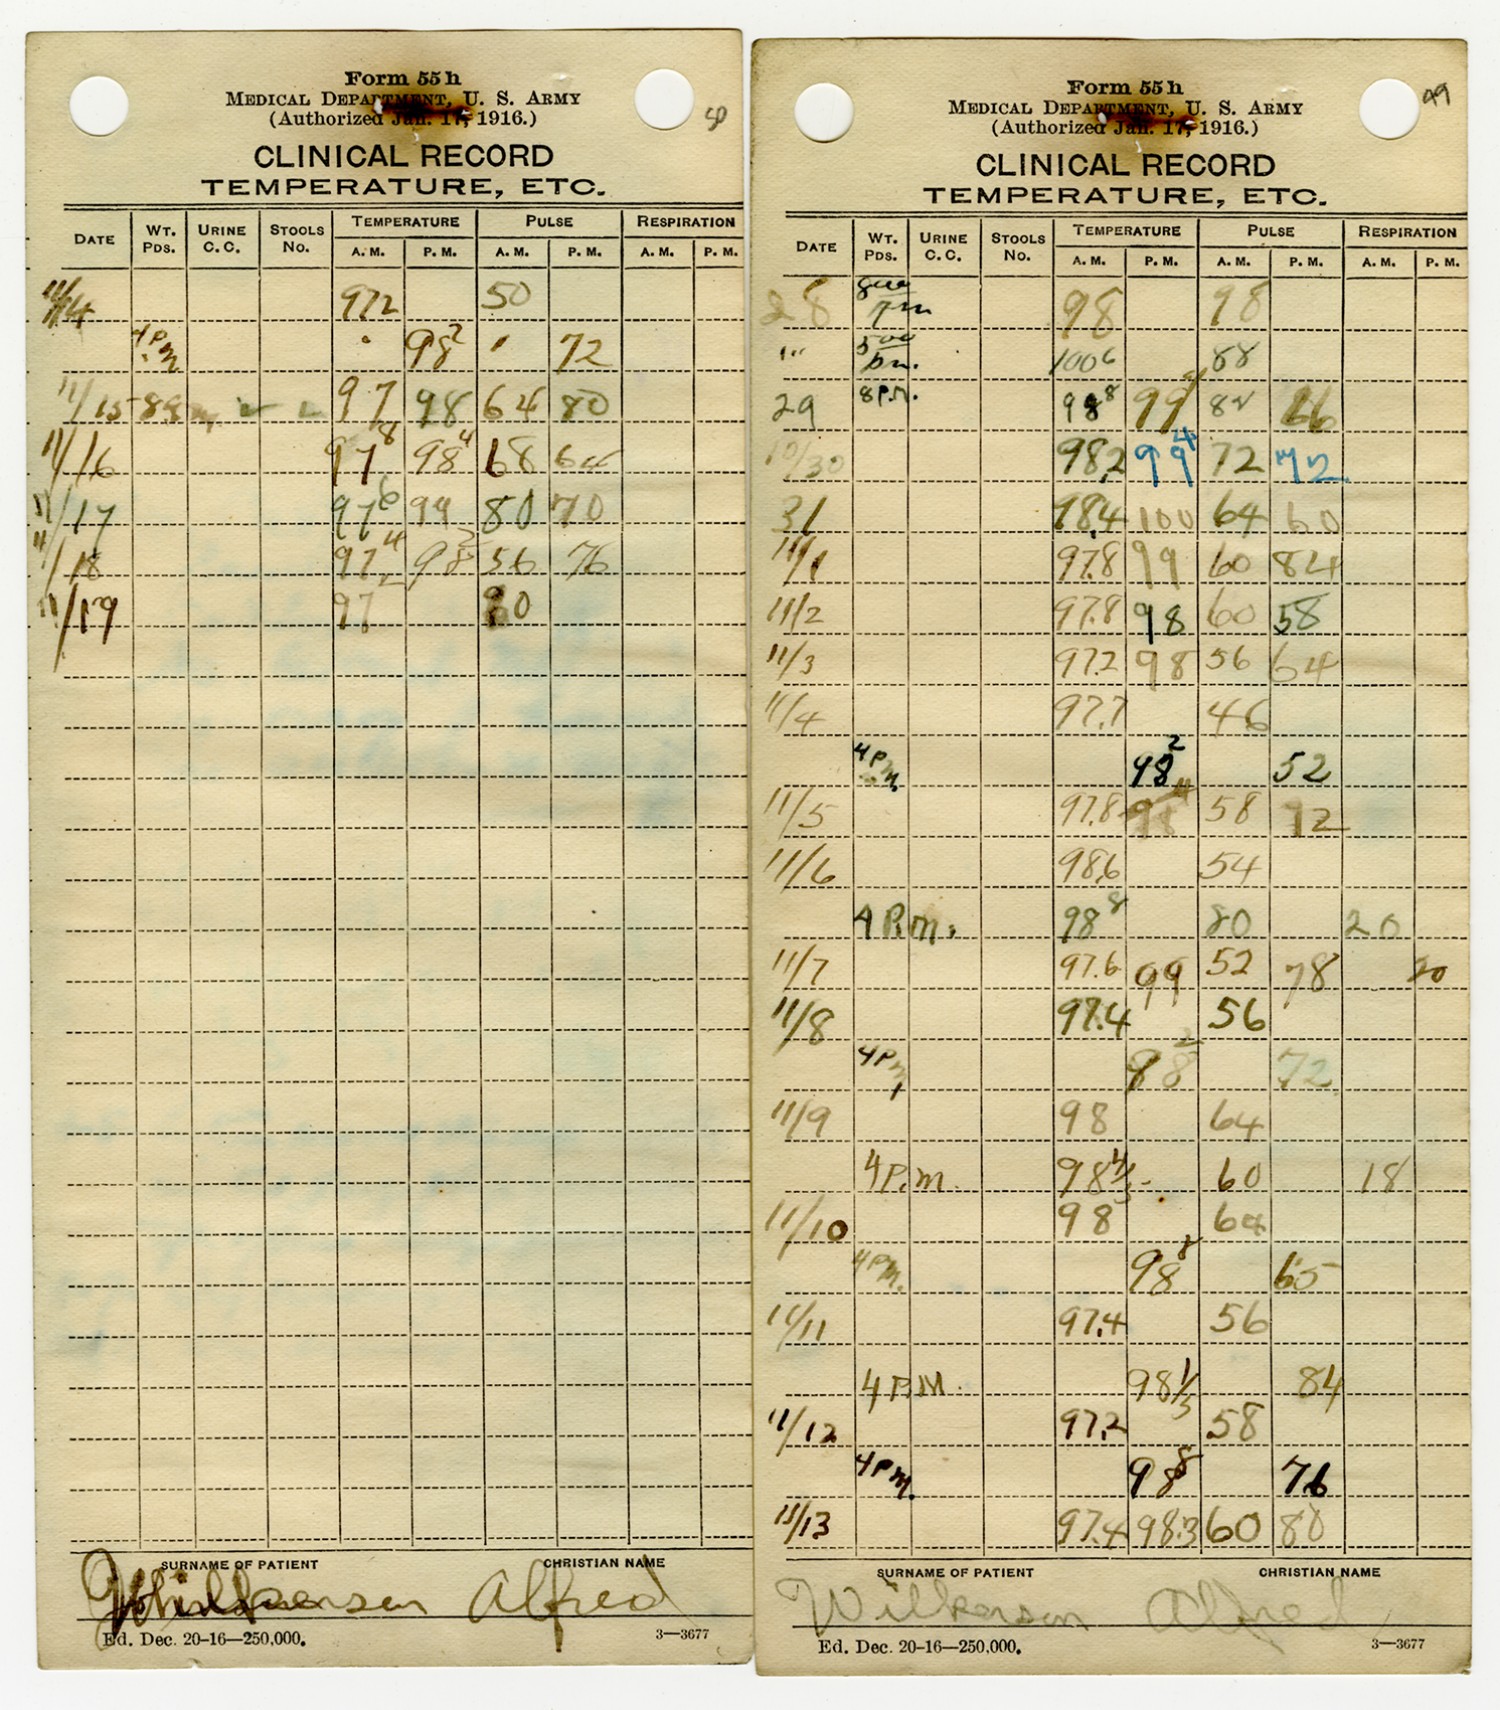 Form 55 h
MEDICAL DEPARTMENT, U. S. ARMY
(Authorized Jan. 17, 1916.)
50
CLINICAL RECORD
TEMPERATURE, ETC.
DATE WT. PDS. URINE C. C. STOOLS No. TEMPERATURE PULSE RESPIRATION
A. M. P. M. A. M. P. M. A. M. P. M.
11/14 972 50
4 P m 98² 72
11/15 97 98 64 80
11/16 97⁸ 98⁴ 68 64
11/17 97⁶ 99 80 70
11/18 97⁴ 98² 56 76
11/19 97 80
SURNAME OF PATIENT CHRISTIAN NAME
Wilkerson Alfred
Ed. Dec. 20-16—250,000.
3—3677
Form 55 h
MEDICAL DEPARTMENT, U. S. ARMY
(Authorized Jan. 17, 1916.)
49
CLINICAL RECORD
TEMPERATURE, ETC.
DATE WT. PDS. URINE C. C. STOOLS No. TEMPERATURE PULSE RESPIRATION
A. M. P. M. A. M. P. M. A. M. P. M.
28 98 98
" 5 00 pm. 100 6 88
29 8 P.M. 98⁸ 99 82 66
10/30 98.2 99⁴ 72 72
31 98.4 100 64 60
11/1 97.8 99 60 84
11/2 97.8 98 60 58
11/3 97.2 98 56 64
11/4 97.7 46
4 P m. 98² 52
11/5 97.8 98⁴ 58 72
11/6 98.6 54
4 P.m. 98⁸ 80 20
11/7 97.6 99 52 78 20
11/8 97.4 56
4 P m 98² 72
11/9 98 64
4 P.m. 98 4/5 60 18
11/10 98 64
4 PM. 98⁸ 65
11/11 97.4 56
4 P.M. 98 1/5 84
11/12 97.2 58
4 P m. 98⁸ 76
11/13 97.4 98.3 60 80
SURNAME OF PATIENT CHRISTIAN NAME
Wilkerson Alfred
Ed. Dec. 20-16—250,000.
3—3677